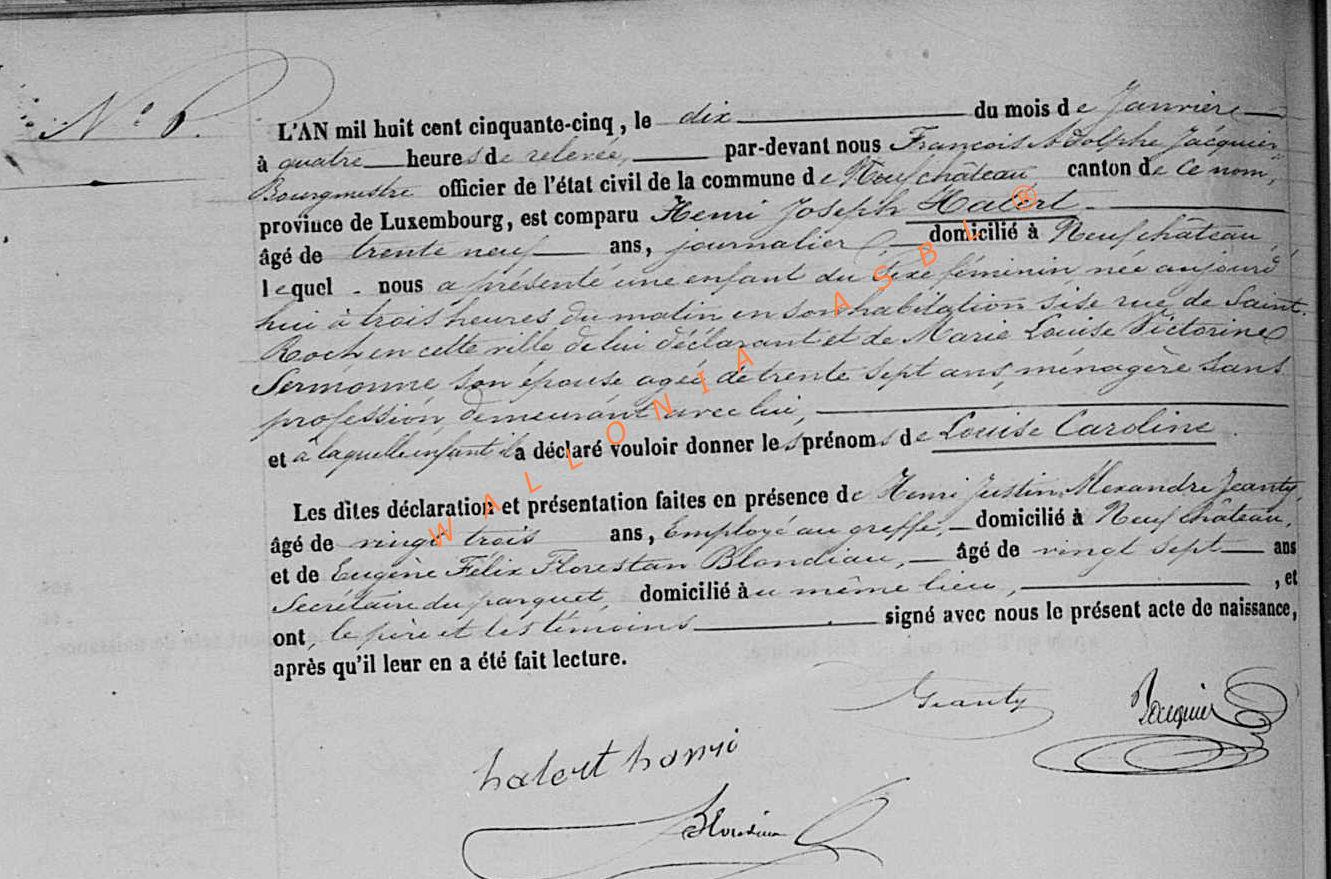 N° 6.
L'AN mil huit cent cinquante-cinq, le dix du mois de Janvier
à quatre heures de relevée, par-devant nous François Adolphe Jacquier
Bourgmestre officier de l'état civil de la commune de Neufchâteau canton de ce nom,
province de Luxembourg, est comparu Henri Joseph Halert
âgé de trente neuf ans, journalier domicilié à Neufchâteau,
lequel nous a présenté une enfant du sexe féminin née aujourd'
hui à trois heures du matin en son habitation sise rue de Saint
Roch en cette ville de lui déclarant et de Marie Louise Victorine
Sermonne son épouse agée de trente sept ans, ménagère sans
profession demeurant avec lui,
et a laquelle enfant il a déclaré vouloir donner les prénoms de Louise Caroline.
Les dites déclaration et présentation faites en présence de Henri Justin Alexandre Jeanty,
âgé de vingt trois ans, Employé au greffe, domicilié à Neufchâteau,
et de Eugène Félix Florestan Blondiau, âgé de vingt sept ans
Secrétaire du parquet, domicilié au même lieu, , et
ont, le père et les témoins signé avec nous le présent acte de naissance,
après qu'il leur en a été fait lecture.
Jeanty
Jacquier
halert henri
Blondiau
WALLONIA ASBL ®